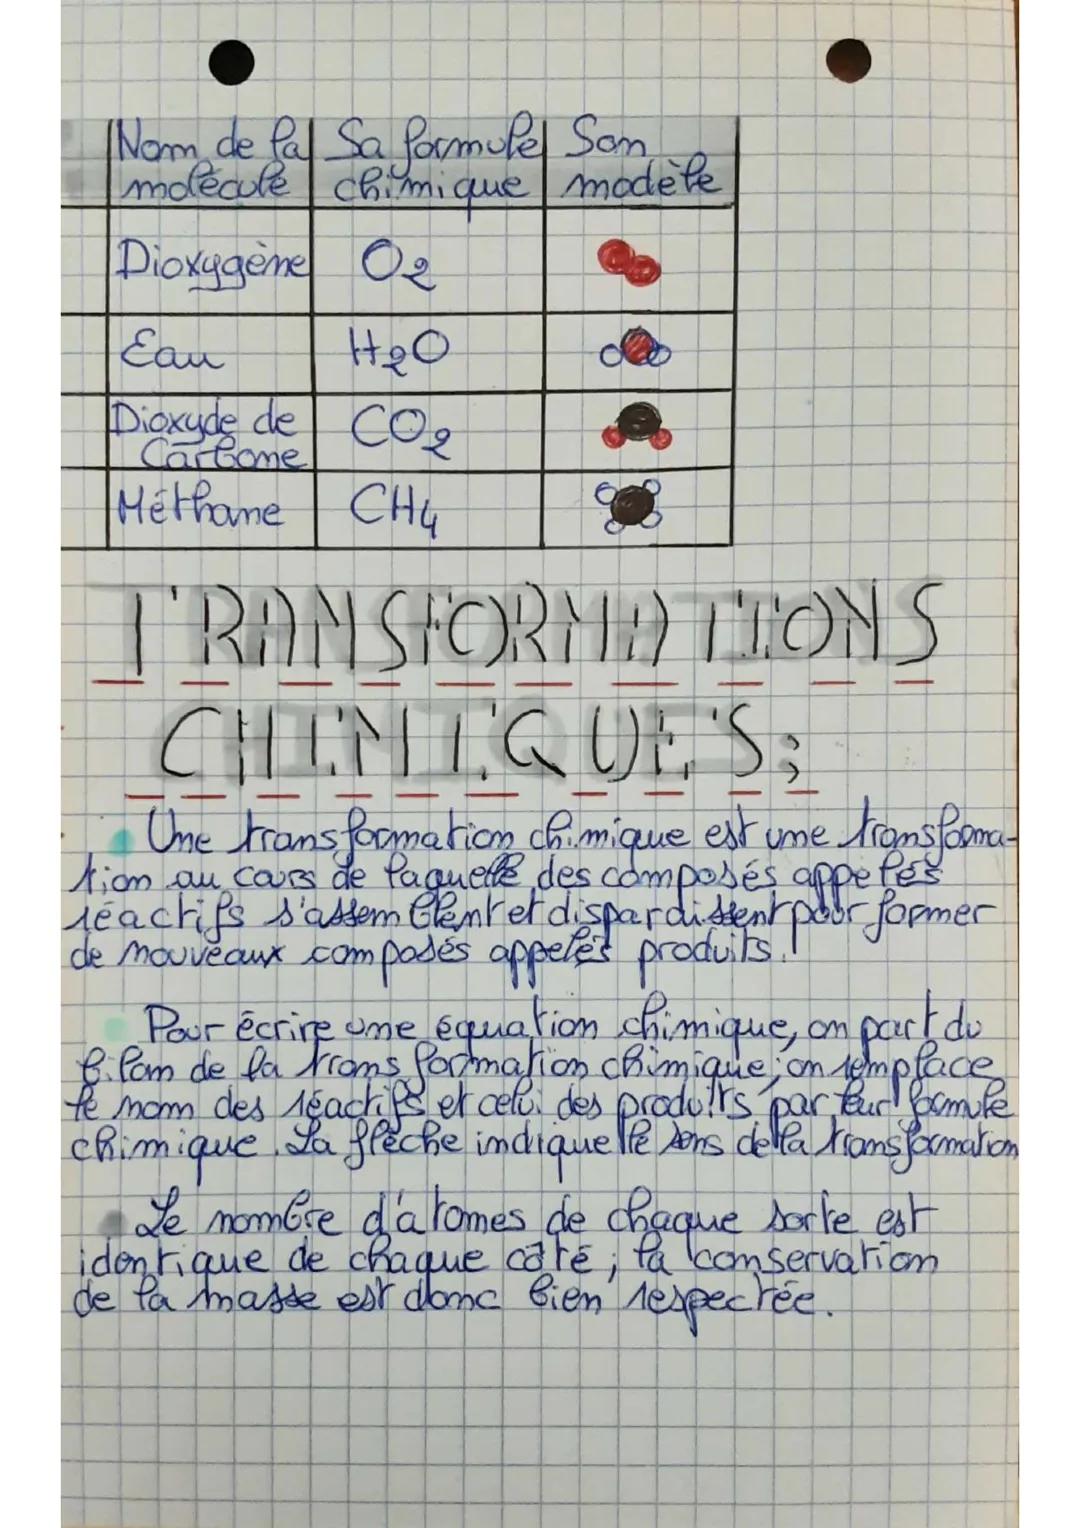 Nom de la molécule | Sa formule chimique | Son modèle
Dioxygène | O2
Eau | H2O
Dioxyde de Carbone | CO2
Méthane | CH4
TRANSFORMATIONS
CHIMIQUES;
Une transformation chimique est une transforma-
tion au cours de laquelle des composés appelés
réactifs s'assemblent et disparaissent pour former
de nouveaux composés appelés produits.
Pour écrire une équation chimique, on part du
bilan de la transformation chimique; on remplace
le nom des réactifs et celui des produits par leur formule
chimique. La flèche indique le sens de la transformation
Le nombre d'atomes de chaque sorte est
identique de chaque côté; la conservation
de la masse est donc bien respectée.